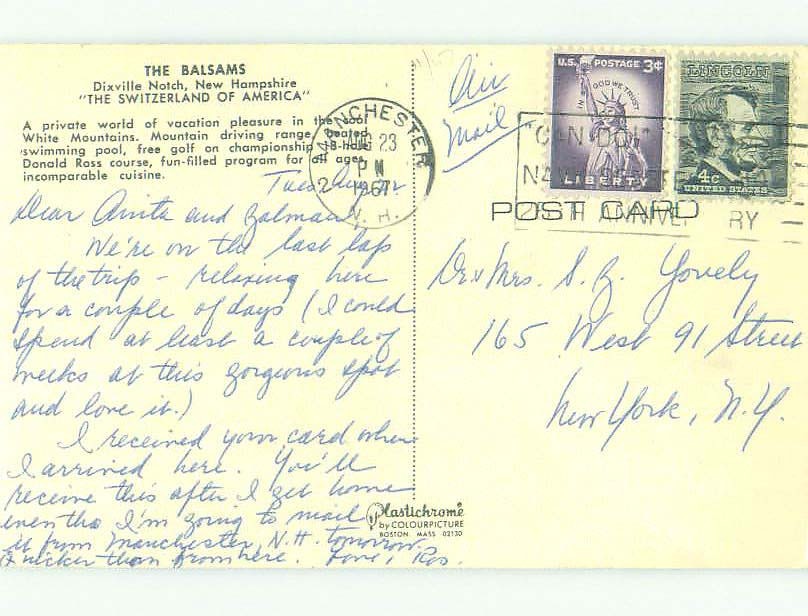 THE BALSAMS
Dixville Notch, New Hampshire
"THE SWITZERLAND OF AMERICA"
A private world of vacation pleasure in the cool
White Mountains. Mountain driving range, heated
swimming pool, free golf on championship 18-hole
Donald Ross course, fun-filled program for all ages,
incomparable cuisine.
Tues Aug 22
Dear Anita and Zalman,
We're on the last lap
of the trip - relaxing here
for a couple of days (I could
spend at least a couple of
weeks at this gorgeous spot
and love it.)
I received your card when
I arrived here. You'll
receive this after I get home
even tho I'm going to mail
it from Manchester, N.H. tomorrow.
Quicker than from here. Love, Ros.
Plastichrome
by COLOURPICTURE
BOSTON MASS 02130
MANCHESTER
AUG 23
PM
1967
N. H.
Air
Mail
U.S. POSTAGE 3¢
IN GOD WE TRUST
LIBERTY
LINCOLN
4c
UNITED STATES
"CAN DO!"
ANNIVERSARY
POST CARD
Dr & Mrs. S. Z. Yovely
165 West 91 Street
New York, N.Y.